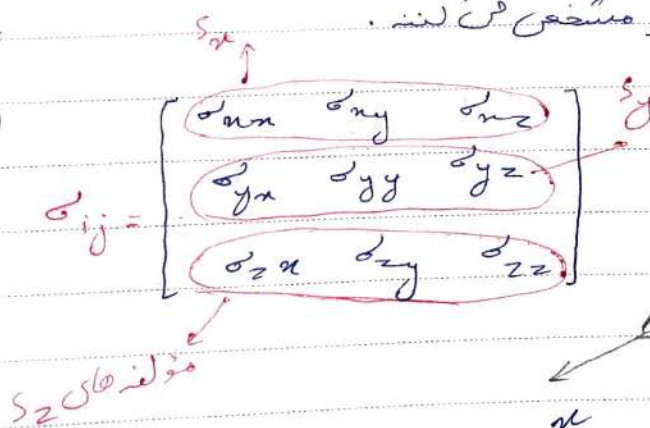 مشخص می کنند .
Sx
σxx σxy σxz
Sy
σij =
σyx σyy σyz
σzx σzy σzz
مؤلفه های Sz
x